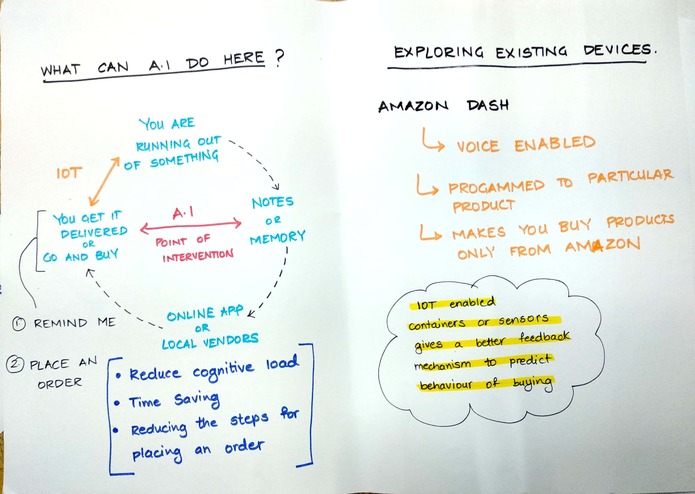 WHAT CAN A.I DO HERE ?
YOU ARE
RUNNING OUT
OF SOMETHING
IOT
YOU GET IT
DELIVERED
OR
GO AND BUY
A.I
POINT OF
INTERVENTION
NOTES
OR
MEMORY
ONLINE APP
OR
LOCAL VENDORS
① REMIND ME
② PLACE AN
ORDER
• Reduce cognitive load
• Time Saving
• Reducing the steps for
placing an order
EXPLORING EXISTING DEVICES.
AMAZON DASH
VOICE ENABLED
PROGAMMED TO PARTICULAR
PRODUCT
MAKES YOU BUY PRODUCTS
ONLY FROM AMAZON
IOT enabled
containers or sensors
gives a better feedback
mechanism to predict
behaviour of buying